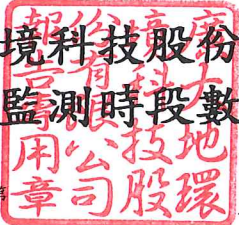 境科技股份
監測時段數
廣大地環
境科技股
份有限公司
報告專用章